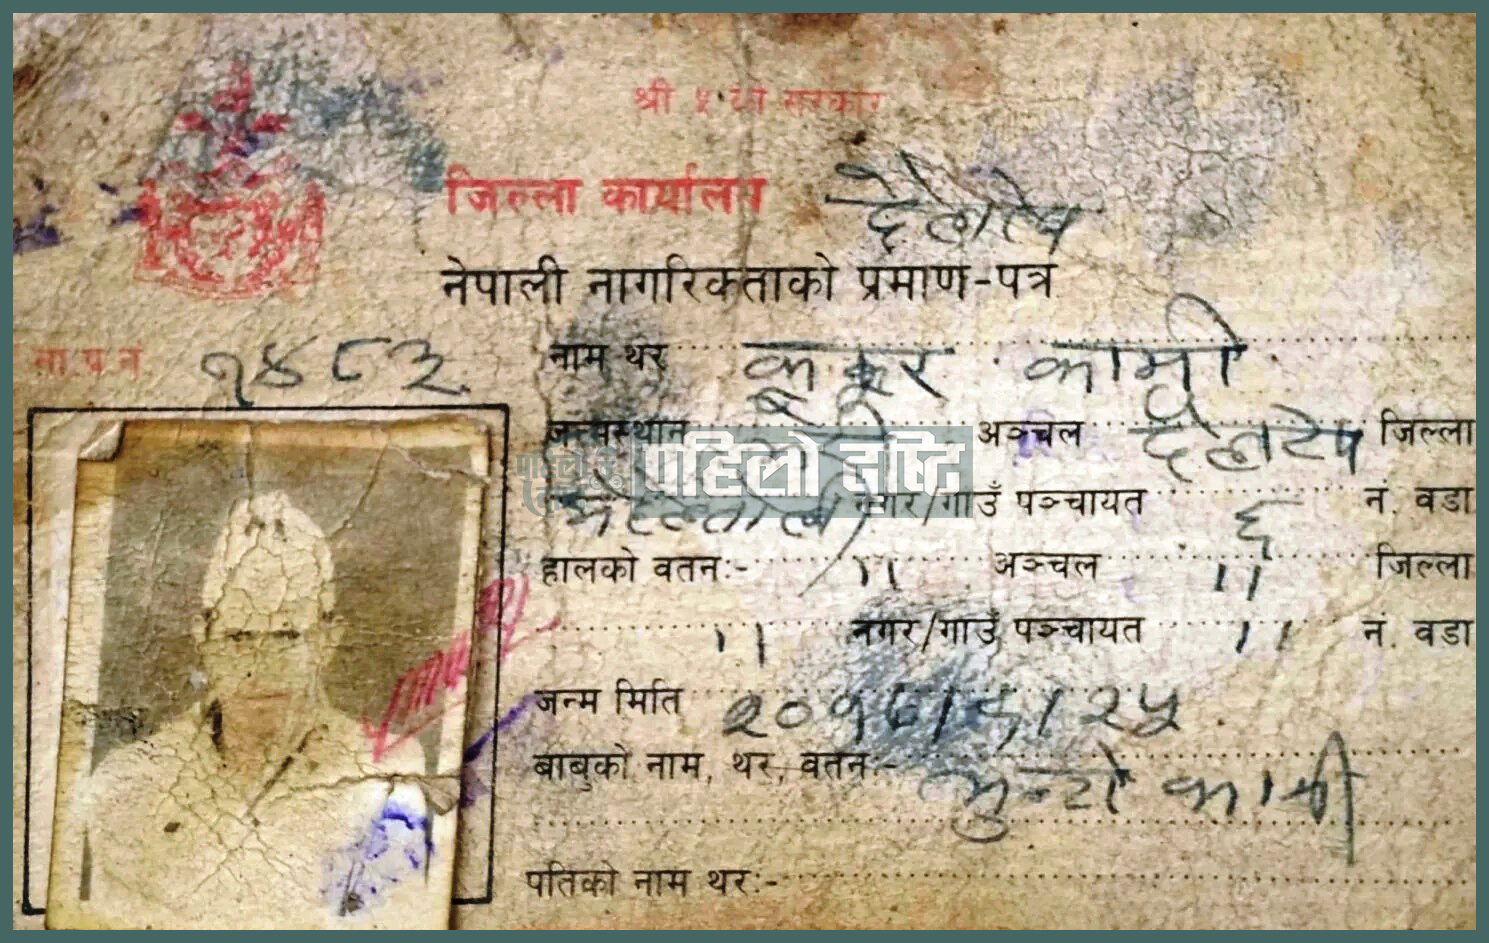 श्री ५ को सरकार
जिल्ला कार्यालय दैलेख
नेपाली नागरिकताको प्रमाण-पत्र
ना प न १४८३
नाम थर कुकुर कामी
जन्मस्थान भेरी अञ्चल दैलेख जिल्ला
पहिलो दृष्टि
नगर/गाउँ पञ्चायत ६ नं. वडा
हालको वतन:- ,, अञ्चल ,, जिल्ला
,, नगर/गाउँ पञ्चायत ,, नं. वडा
जन्म मिति २०१८।८।२५
बाबुको नाम, थर, वतन:- कामी
पतिको नाम थर:-